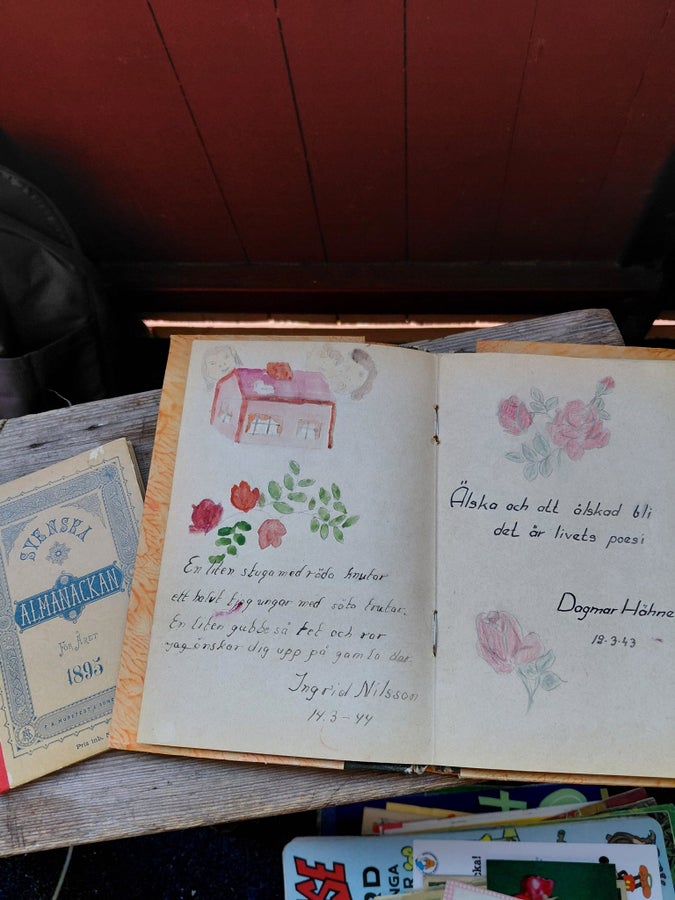 SVENSKA
ALMANACKAN
FÖR ÅRET
1895
P. A. NORSTEDT & SÖNER
Pris inb.
En liten stuga med röda knutar
ett halvt tjog ungar med söta trutar.
En liten gubbe så fet och rar
jag önskar dig upp på gamla dar.
Ingrid Nilsson
14.3-44
Älska och att älskad bli
det är livets poesi
Dagmar Höhne
19-3-43
NGA
cka!